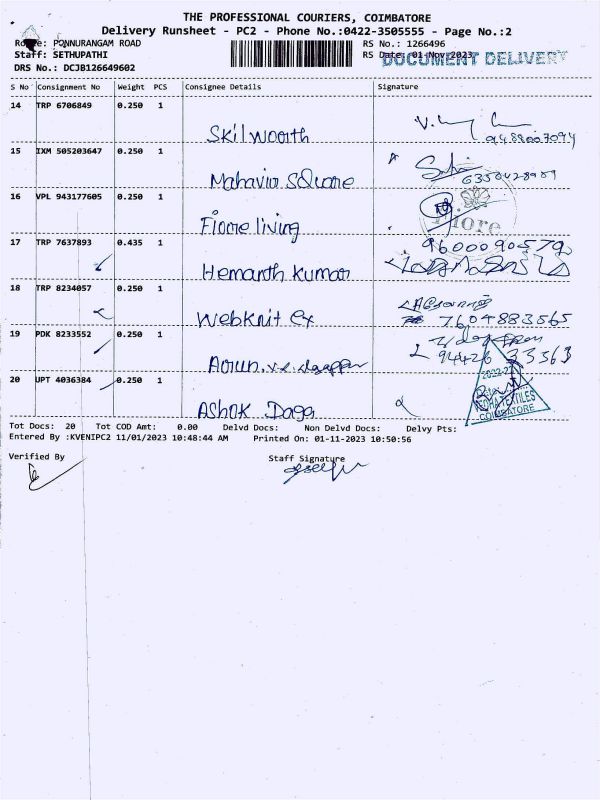 THE PROFESSIONAL COURIERS, COIMBATORE
Delivery Runsheet - PC2 - Phone No.:0422-3505555 - Page No.:2
Route: PONNURANGAM ROAD
RS No.: 1266496
Staff: SETHUPATHI
RS Date: 01-Nov-2023
DOCUMENT DELIVERY
DRS No.: DCJB126649602
S No Consignment No Weight PCS Consignee Details Signature
14 TRP 6706849 0.250 1
Skilworth
15 IXM 505203647 0.250 1
Mahavir Square
16 VPL 943177605 0.250 1
Fiore living
fiore
17 TRP 7637893 0.435 1
9600090579
Hemanth Kumar
18 TRP 8234057 0.250 1
Webknit Ex 7604883565
19 PDK 8233552 0.250 1
94426 33563
Arun.
20 UPT 4036384 0.250 1
2022-23
TEXTILES
COIMBATORE
Ashok Daga
Tot Docs: 20 Tot COD Amt: 0.00 Delvd Docs: Non Delvd Docs: Delvy Pts:
Entered By :KVENIPC2 11/01/2023 10:48:44 AM Printed On: 01-11-2023 10:50:56
Verified By Staff Signature